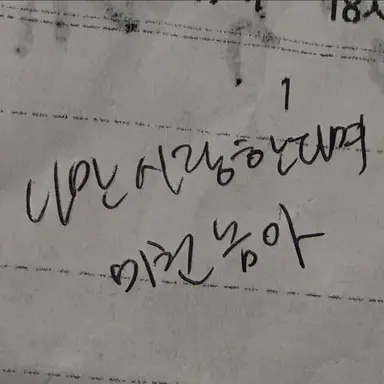 18
1
나만 사랑한다며
미친놈아